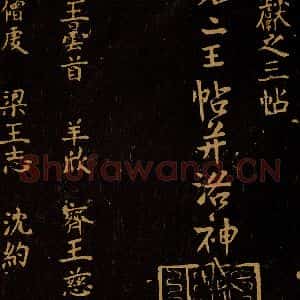 獻之三帖
二王帖并洛神
王曇首 羊欣 齊王慈
僧虔 梁王志 沈約
Shufawang.CN